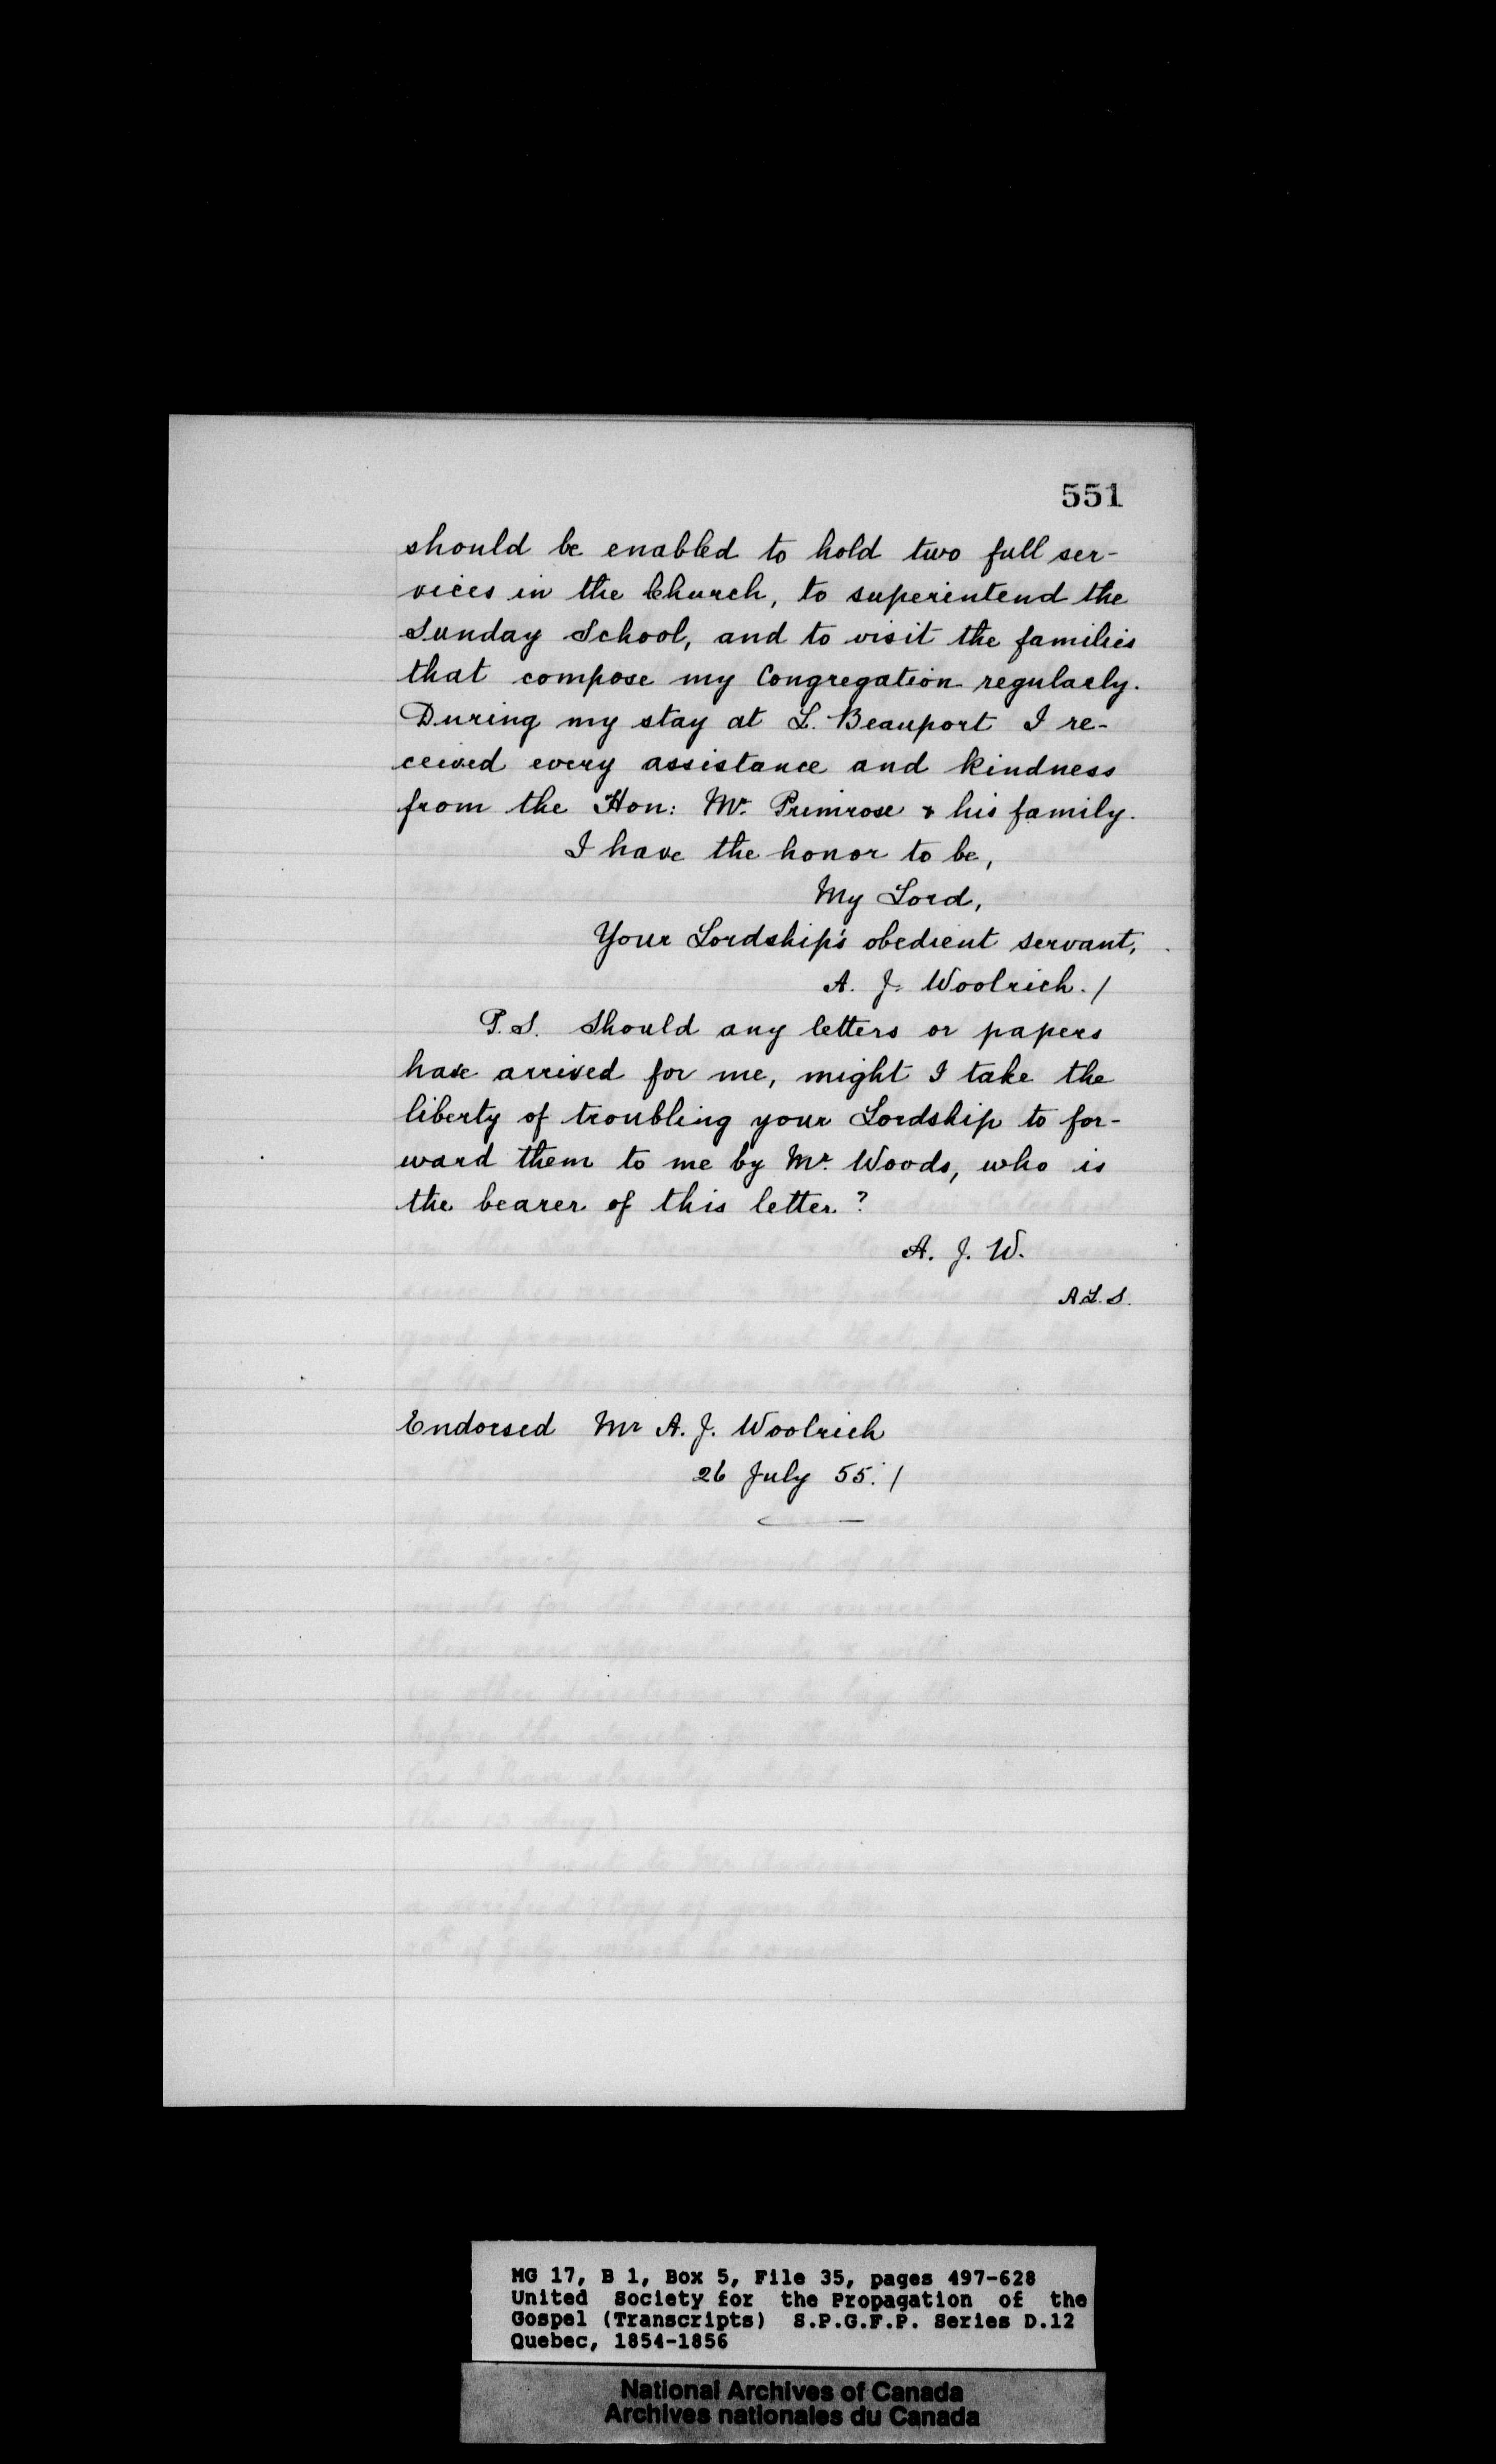 551
should be enabled to hold two full ser-
vices in the Church, to superintend the
Sunday School, and to visit the families
that compose my Congregation regularly.
During my stay at L. Beauport I re-
ceived every assistance and kindness
from the Hon: Mr. Primrose & his family.
I have the honor to be,
My Lord,
Your Lordship's obedient servant,
A. J. Woolrich. /
P.S. Should any letters or papers
have arrived for me, might I take the
liberty of troubling your Lordship to for-
ward them to me by Mr. Woods, who is
the bearer of this letter?
A. J. W.
A.L.S.
Endorsed Mr A. J. Woolrich
26 July 55. /
MG 17, B 1, Box 5, File 35, pages 497-628
United Society for the Propagation of the
Gospel (Transcripts) S.P.G.F.P. Series D.12
Quebec, 1854-1856
National Archives of Canada
Archives nationales du Canada